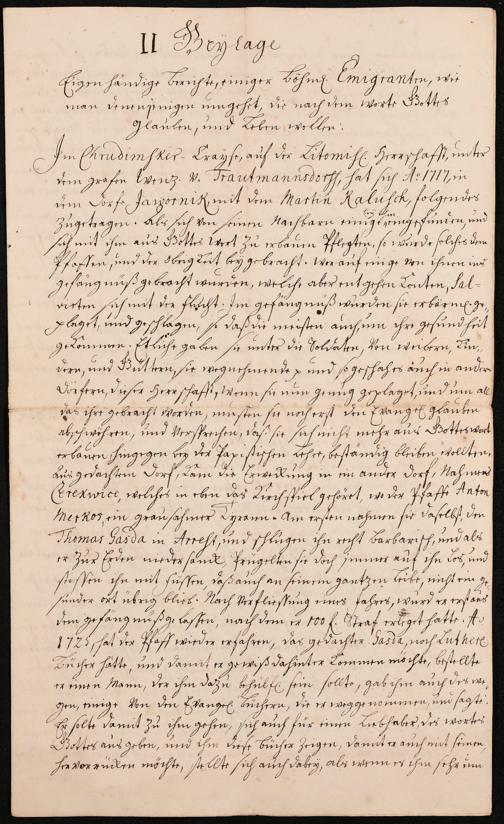 II Beylage
Eigenhändige Berichte, einiger Böhm. Emigranten, wie
man denenjenigen umgehet, die nach dem worte Gottes
glauben, und leben wollen:
Im Chrudimsker-Crayse, auf der Litomisch. Herrschafft, unter
dem grafen Wenz. v. Trautmannsdorff, hat sich Ao 1717, in
dem Dorfe Jawornik mit dem Martin Kalusch, folgendes
zugetragen. Als sich von seinen Nachbarn einige bey ihm eingefunden, und
sich mit ihm aus Gottes Wort zu erbauen pflegten, so wurde solches dem
Pfaffen, und der Obrigkeit beygebracht. Worauf einige von ihnen ins
gefängnüß gebracht wurden, welche aber entgehen konten, sal-
virten sich mit der flucht. Im gefängnüß wurden sie erbärml. ge-
plaget, und geschlagen, so daß die meisten auch um ihre gesundheit
gekommen. Etliche gaben sie unter die Soldaten, von weibern, Kin-
dern, und Güttern, sie wegnehmende, und so geschahe es auch in andern
Dörfern, dieser Herrschafft, wenn sie nun genug geplaget, und um all
das ihre gebracht worden, musten sie noch erst den Evangel. glauben
abschwehren, und versprechen, daß sie sich nicht mehr aus Gottes wort
erbauen, hingegen bey der Papistischen Lehre, beständig bleiben wolten,
aus gedachtem Dorf, kam die Erweckung in ein ander Dorf, Nahmens
Cerekwice, welches in eben das Kirchspiel gehöret, wo der Pfaff Anton
Merkos, ein grausahmer Tyrann. Am ersten nahmen sie daselbst, den
Thomas Sasda in Arrest, und schlugen ihn recht barbarisch, und als
er zur Erden niedersank, prügelten sie doch immer auf ihn los, und
stiessen ihn mit füssen, daß auch an seinem gantzen Leibe, nicht ein ge-
sunder ort übrig blieb. Nach verfliessung eines Jahres, wurd er erst aus
dem gefängnüß gelassen, nachdem er 100 f. Straf erleget hatte. Ao
1725, hat der Pfaff wieder erfahren, das gedachter Sasda, noch Luthere
Bücher hätte, und damit er gewiß dahinter kommen möchte, bestellte
er einen Mann, der ihm dazu behülfl. sein sollte, gab ihm auch des we-
gen, einige von den Evangel. büchern, die er weggenommen, und sagte:
Er solte damit zu ihm gehen, sich auch für einen Liebhaber, des wortes
Gottes ausgeben, und ihm diese bücher zeigen, damit er auch mit seinen
hervorrücken möchte, stellte sich auch dabey, als wenn es ihm sehr um